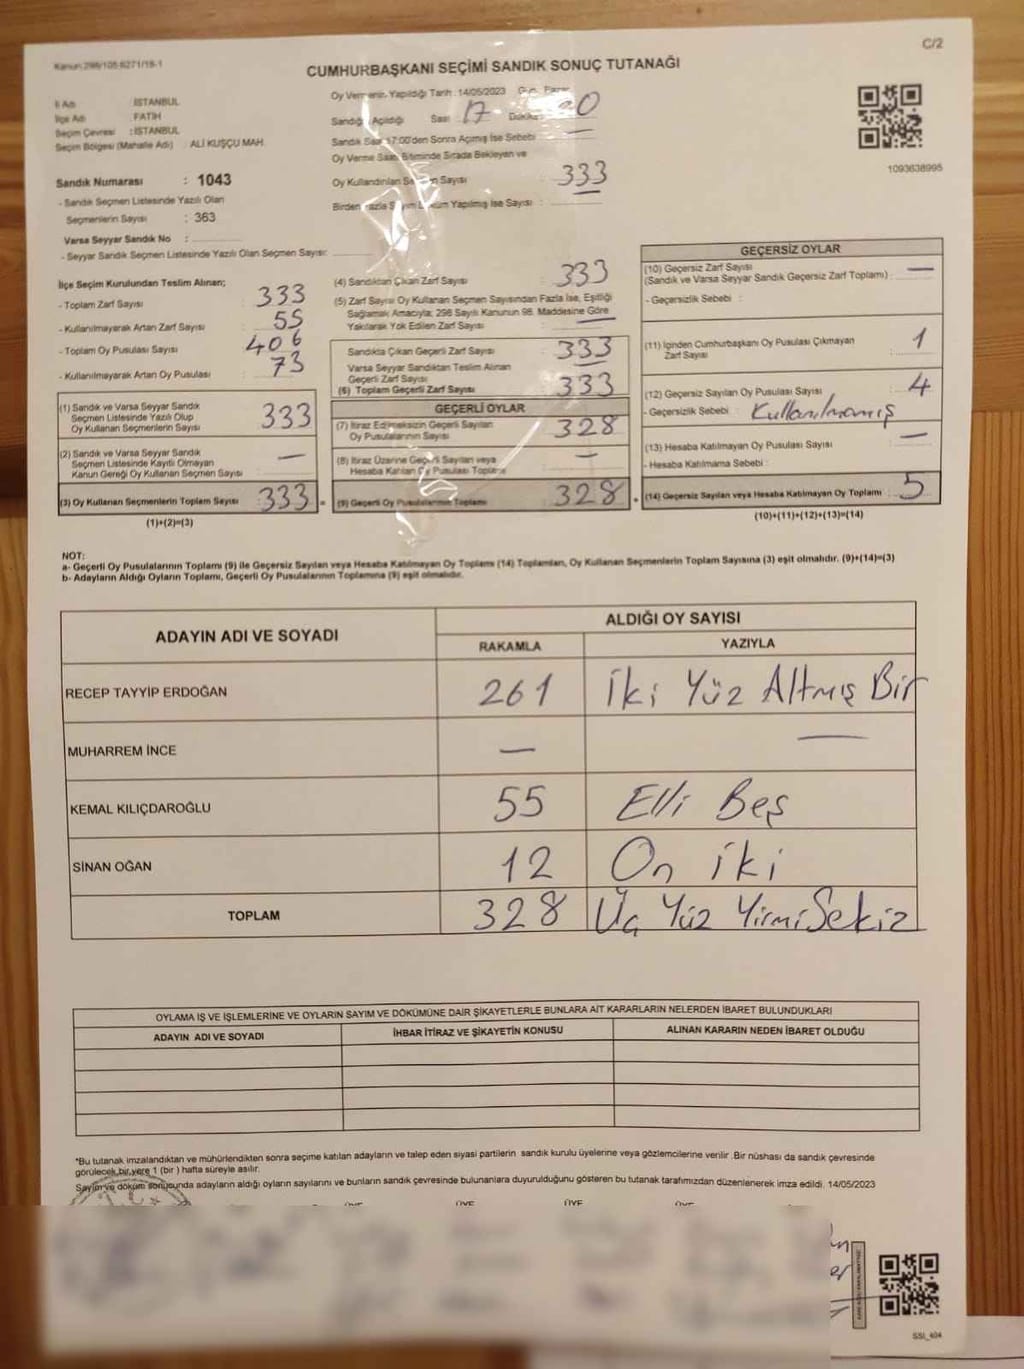 C/2
Kanun:298/105-6271/18-1
CUMHURBAŞKANI SEÇİMİ SANDIK SONUÇ TUTANAĞI
İl Adı : İSTANBUL
İlçe Adı : FATİH
Seçim Çevresi : İSTANBUL
Seçim Bölgesi (Mahalle Adı) : ALİ KUŞÇU MAH.
Sandık Numarası : 1043
- Sandık Seçmen Listesinde Yazılı Olan
Seçmenlerin Sayısı : 363
Varsa Seyyar Sandık No :
- Seyyar Sandık Seçmen Listesinde Yazılı Olan Seçmen Sayısı:
Oy Vermenin Yapıldığı Tarih : 14/05/2023 Gün: Pazar
Sandığın Açıldığı Saat 17 Dakika 20
Sandık Saat 17:00'den Sonra Açılmış İse Sebebi : —
Oy Verme Saati Bitiminde Sırada Bekleyen ve
Oy Kullandırılan Seçmen Sayısı : 333
Birden Fazla Sayım Döküm Yapılmış İse Sayısı :
1093638995
İlçe Seçim Kurulundan Teslim Alınan;
- Toplam Zarf Sayısı : 333
- Kullanılmayarak Artan Zarf Sayısı : 55
- Toplam Oy Pusulası Sayısı : 406
- Kullanılmayarak Artan Oy Pusulası : 73
(1) Sandık ve Varsa Seyyar Sandık
Seçmen Listesinde Yazılı Olup
Oy Kullanan Seçmenlerin Sayısı : 333
(2) Sandık ve Varsa Seyyar Sandık
Seçmen Listesinde Kayıtlı Olmayan
Kanun Gereği Oy Kullanan Seçmen Sayısı : —
(3) Oy Kullanan Seçmenlerin Toplam Sayısı : 333 =
(1)+(2)=(3)
(4) Sandıktan Çıkan Zarf Sayısı : 333
(5) Zarf Sayısı Oy Kullanan Seçmen Sayısından Fazla İse, Eşitliği
Sağlamak Amacıyla; 298 Sayılı Kanunun 98. Maddesine Göre
Yakılarak Yok Edilen Zarf Sayısı : —
Sandıkta Çıkan Geçerli Zarf Sayısı : 333
Varsa Seyyar Sandıktan Teslim Alınan
Geçerli Zarf Sayısı : —
(6) Toplam Geçerli Zarf Sayısı : 333
GEÇERLİ OYLAR
(7) İtiraz Edilmeksizin Geçerli Sayılan
Oy Pusulalarının Sayısı : 328
(8) İtiraz Üzerine Geçerli Sayılan veya
Hesaba Katılan Oy Pusulası Toplamı : —
(9) Geçerli Oy Pusulalarının Toplamı : 328 +
GEÇERSİZ OYLAR
(10) Geçersiz Zarf Sayısı
(Sandık ve Varsa Seyyar Sandık Geçersiz Zarf Toplamı) : —
- Geçersizlik Sebebi :
(11) İçinden Cumhurbaşkanı Oy Pusulası Çıkmayan
Zarf Sayısı : 1
(12) Geçersiz Sayılan Oy Pusulası Sayısı : 4
- Geçersizlik Sebebi : Kullanılmamış
(13) Hesaba Katılmayan Oy Pusulası Sayısı : —
- Hesaba Katılmama Sebebi :
(14) Geçersiz Sayılan veya Hesaba Katılmayan Oy Toplamı : 5
(10)+(11)+(12)+(13)=(14)
NOT:
a- Geçerli Oy Pusulalarının Toplamı (9) ile Geçersiz Sayılan veya Hesaba Katılmayan Oy Toplamı (14) Toplamları, Oy Kullanan Seçmenlerin Toplam Sayısına (3) eşit olmalıdır. (9)+(14)=(3)
b- Adayların Aldığı Oyların Toplamı, Geçerli Oy Pusulalarının Toplamına (9) eşit olmalıdır.
ADAYIN ADI VE SOYADI
ALDIĞI OY SAYISI
RAKAMLA YAZIYLA
RECEP TAYYİP ERDOĞAN 261 İki Yüz Altmış Bir
MUHARREM İNCE — —
KEMAL KILIÇDAROĞLU 55 Elli Beş
SİNAN OĞAN 12 On iki
TOPLAM 328 Üç Yüz Yirmi Sekiz
OYLAMA İŞ VE İŞLEMLERİNE VE OYLARIN SAYIM VE DÖKÜMÜNE DAİR ŞİKAYETLERLE BUNLARA AİT KARARLARIN NELERDEN İBARET BULUNDUKLARI
ADAYIN ADI VE SOYADI İHBAR İTİRAZ VE ŞİKAYETİN KONUSU ALINAN KARARIN NEDEN İBARET OLDUĞU
*Bu tutanak imzalandıktan ve mühürlendikten sonra seçime katılan adayların ve talep eden siyasi partilerin sandık kurulu üyelerine veya gözlemcilerine verilir. Bir nüshası da sandık çevresinde
görülecek bir yere 1 (bir) hafta süreyle asılır.
Sayım ve döküm sonucunda adayların aldığı oyların sayılarını ve bunların sandık çevresinde bulunanlara duyurulduğunu gösteren bu tutanak tarafımızdan düzenlenerek imza edildi. 14/05/2023
ÜYE ÜYE ÜYE ÜYE
SSI_404